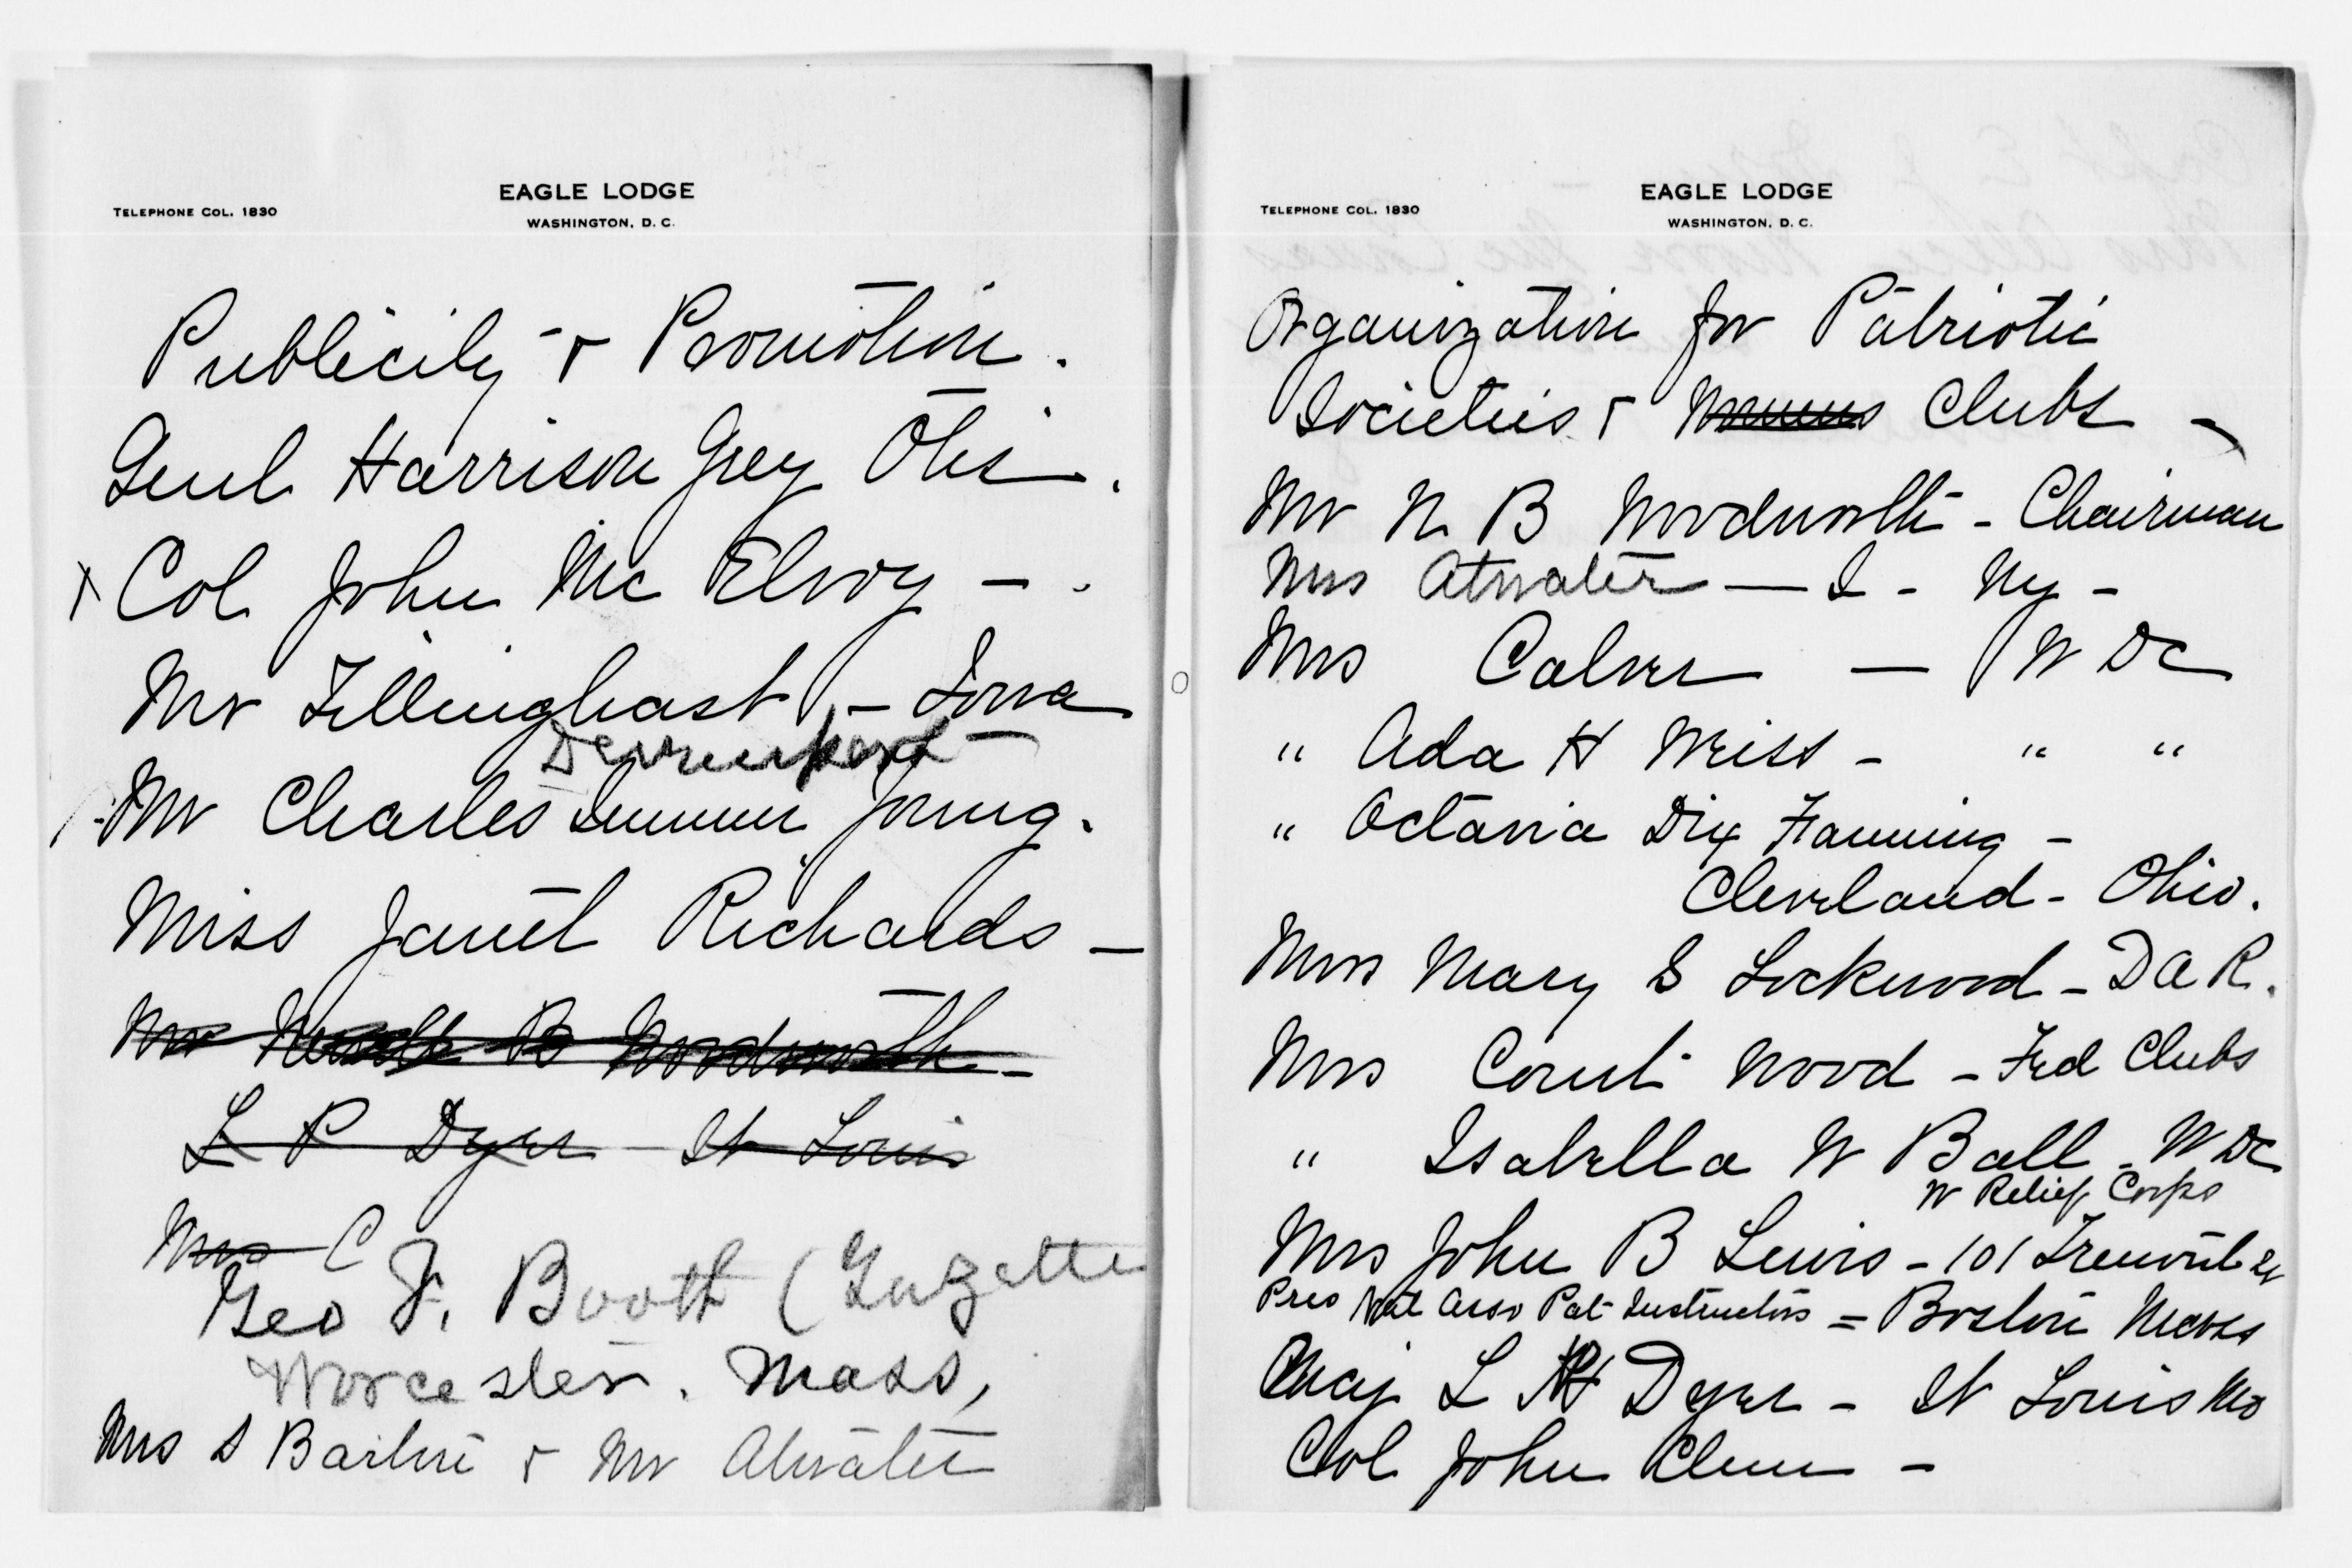 TELEPHONE COL. 1830
EAGLE LODGE
WASHINGTON, D. C.
Publicity & Promotion.
Genl Harrison Grey Otis.
x Col John Mc Elroy -
Mr Tillinghast - Iowa
Davenport
Mr Charles Sumner Young.
Miss Janet Richards -
Mr B Woodworth -
L P Dyer - St Louis
Mrs C
Geo F. Booth (Gazette
Worcester. Mass,
Mrs S Barlow & Mr Atwater
TELEPHONE COL. 1830
EAGLE LODGE
WASHINGTON, D. C.
Organization for Patriotic
Societies & Womens Clubs -
Mr N B Woodworth - Chairman
Mrs Atwater - - Ny -
Mrs Calver - W DC
" Ada H Weiss - " "
" Octavia Dix Fanning -
Cleveland - Ohio.
Mrs Mary S Lockwood - DAR.
Mrs Court Wood - Fed Clubs
" Isabella W Ball - W DC
W Relief Corps
Mrs John B Lewis - 101 Tremont St
Pres Nat Asso Pat Instructors = Boston Mass
Maj L Dyer - St Louis Mo
Col John Clem -